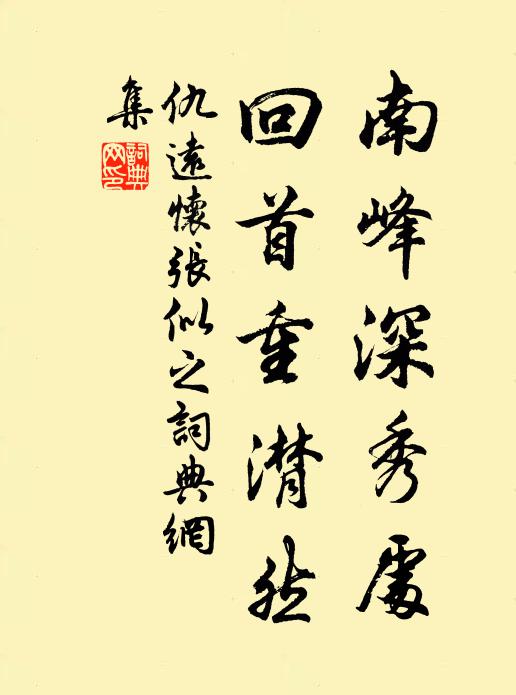 南峰深秀處
回首重潸然
仇遠懷張似之詞典網
集
詞典網印